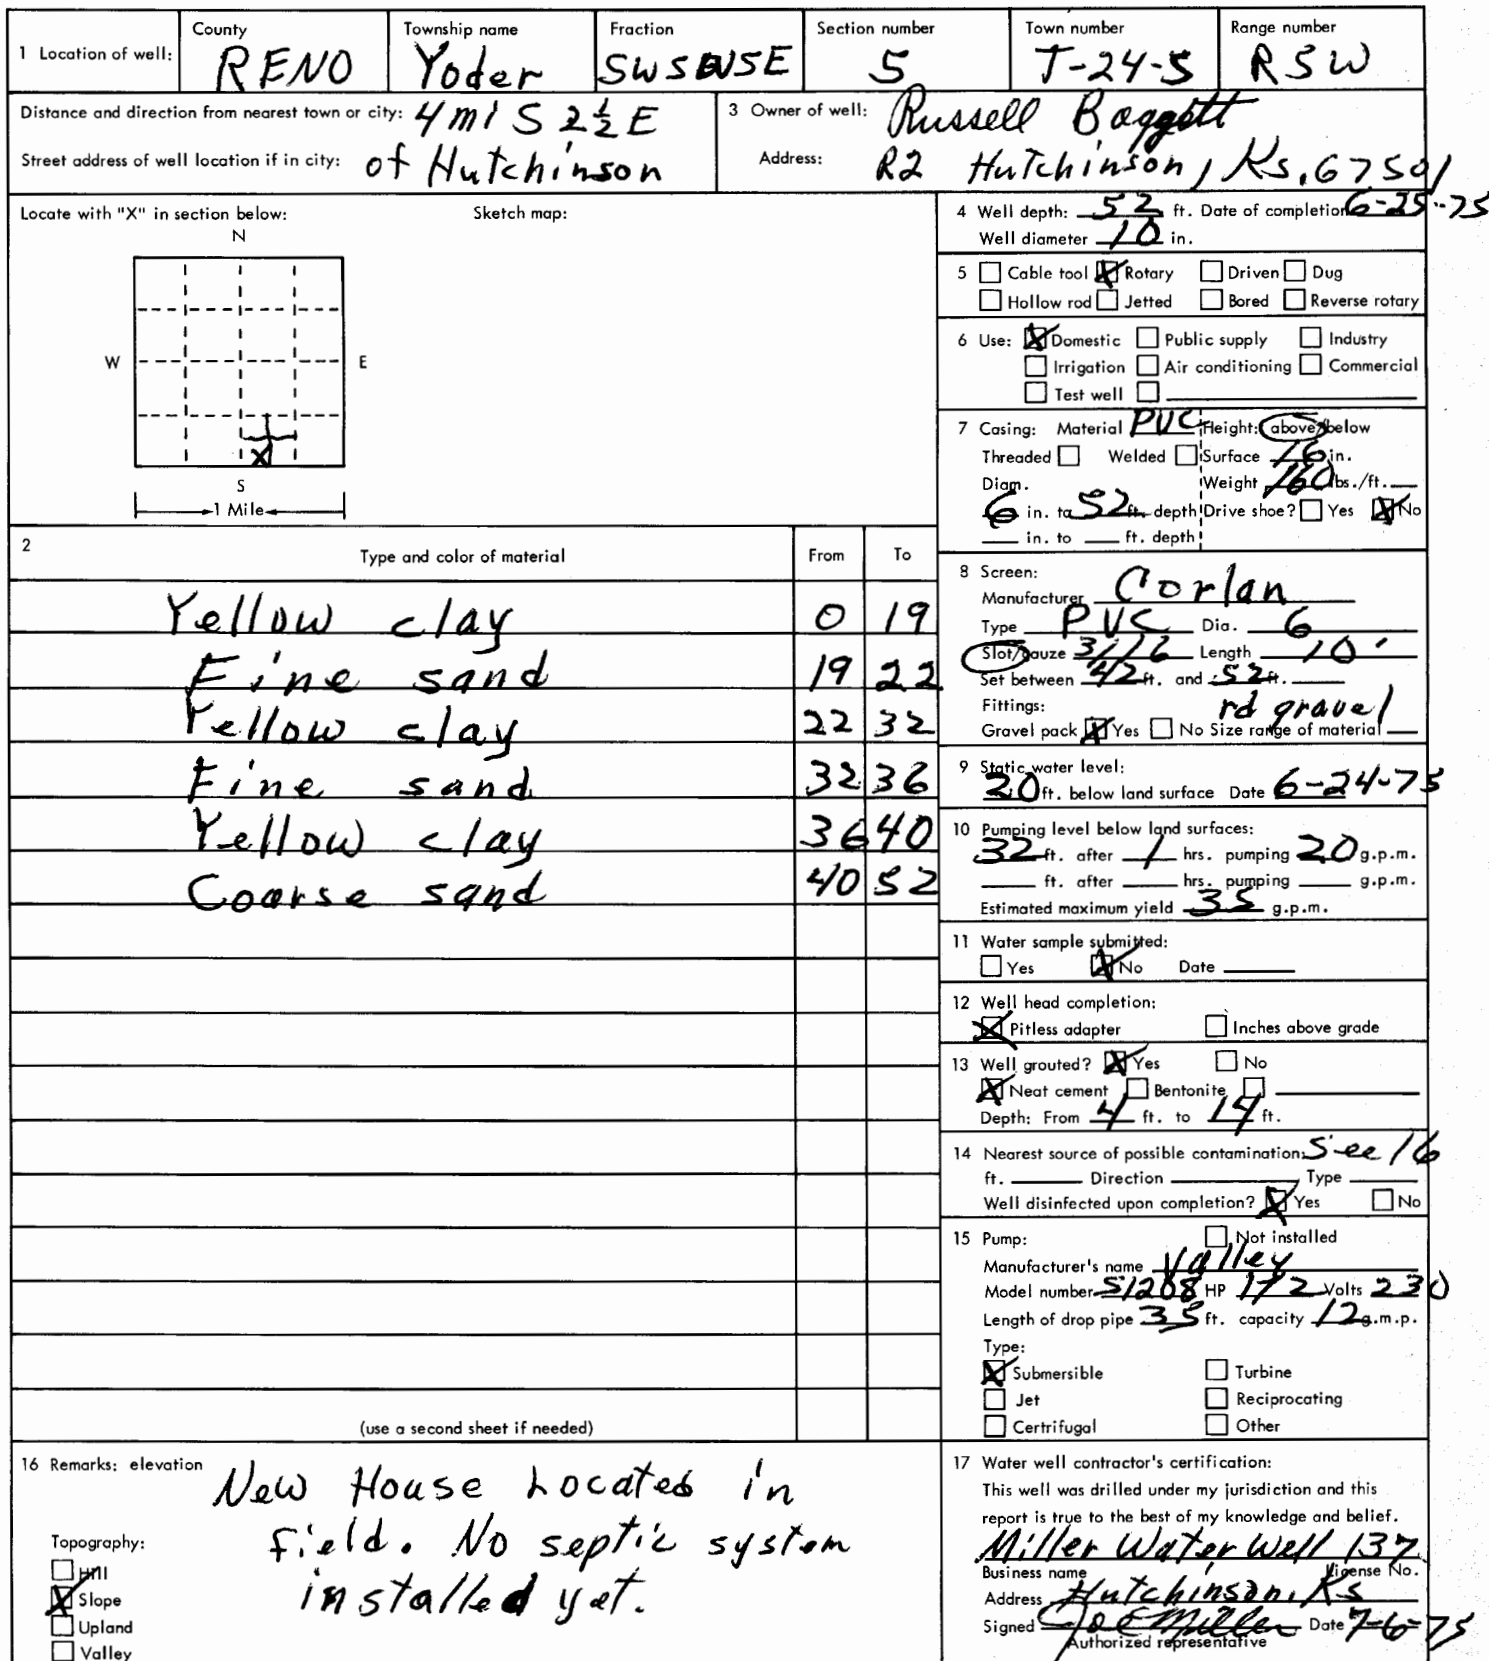 1 Location of well: County RENO Township name Yoder Fraction SWSWSE Section number 5 Town number T-24-S Range number R5W
Distance and direction from nearest town or city: 4 mi S 2½ E
Street address of well location if in city: of Hutchinson
3 Owner of well: Russell Baggett
Address: R2 Hutchinson, Ks. 67501
Locate with "X" in section below: Sketch map:
N
W E
X
S
1 Mile
2 Type and color of material From To
Yellow clay 0 19
Fine sand 19 22
Yellow clay 22 32
Fine sand 32 36
Yellow clay 36 40
Coarse sand 40 52
(use a second sheet if needed)
4 Well depth: 52 ft. Date of completion 6-25-75
Well diameter 10 in.
5 Cable tool X Rotary Driven Dug
Hollow rod Jetted Bored Reverse rotary
6 Use: X Domestic Public supply Industry
Irrigation Air conditioning Commercial
Test well
7 Casing: Material PVC Height: above/below
Threaded Welded Surface 16 in.
Diam. Weight 160 lbs./ft.
6 in. to 52 ft. depth Drive shoe? Yes X No
in. to ft. depth
8 Screen:
Manufacturer Corlan
Type PVC Dia. 6
Slot/gauze 3/16 Length 10'
Set between 42 ft. and 52 ft.
Fittings: rd gravel
Gravel pack X Yes No Size range of material
9 Static water level:
20 ft. below land surface Date 6-24-75
10 Pumping level below land surfaces:
32 ft. after 1 hrs. pumping 20 g.p.m.
ft. after hrs. pumping g.p.m.
Estimated maximum yield 35 g.p.m.
11 Water sample submitted:
Yes X No Date
12 Well head completion:
X Pitless adapter Inches above grade
13 Well grouted? X Yes No
X Neat cement Bentonite
Depth: From 4 ft. to 14 ft.
14 Nearest source of possible contamination: See 16
ft. Direction Type
Well disinfected upon completion? X Yes No
15 Pump: Not installed
Manufacturer's name Valley
Model number S1208 HP 1/2 Volts 230
Length of drop pipe 35 ft. capacity 12 g.m.p.
Type:
X Submersible Turbine
Jet Reciprocating
Certrifugal Other
16 Remarks: elevation New House Located in
field. No septic system
installed yet.
Topography:
Hill
X Slope
Upland
Valley
17 Water well contractor's certification:
This well was drilled under my jurisdiction and this
report is true to the best of my knowledge and belief.
Miller Water Well 137
Business name License No.
Address Hutchinson, Ks
Signed Joe E Miller Date 7-6-75
Authorized representative